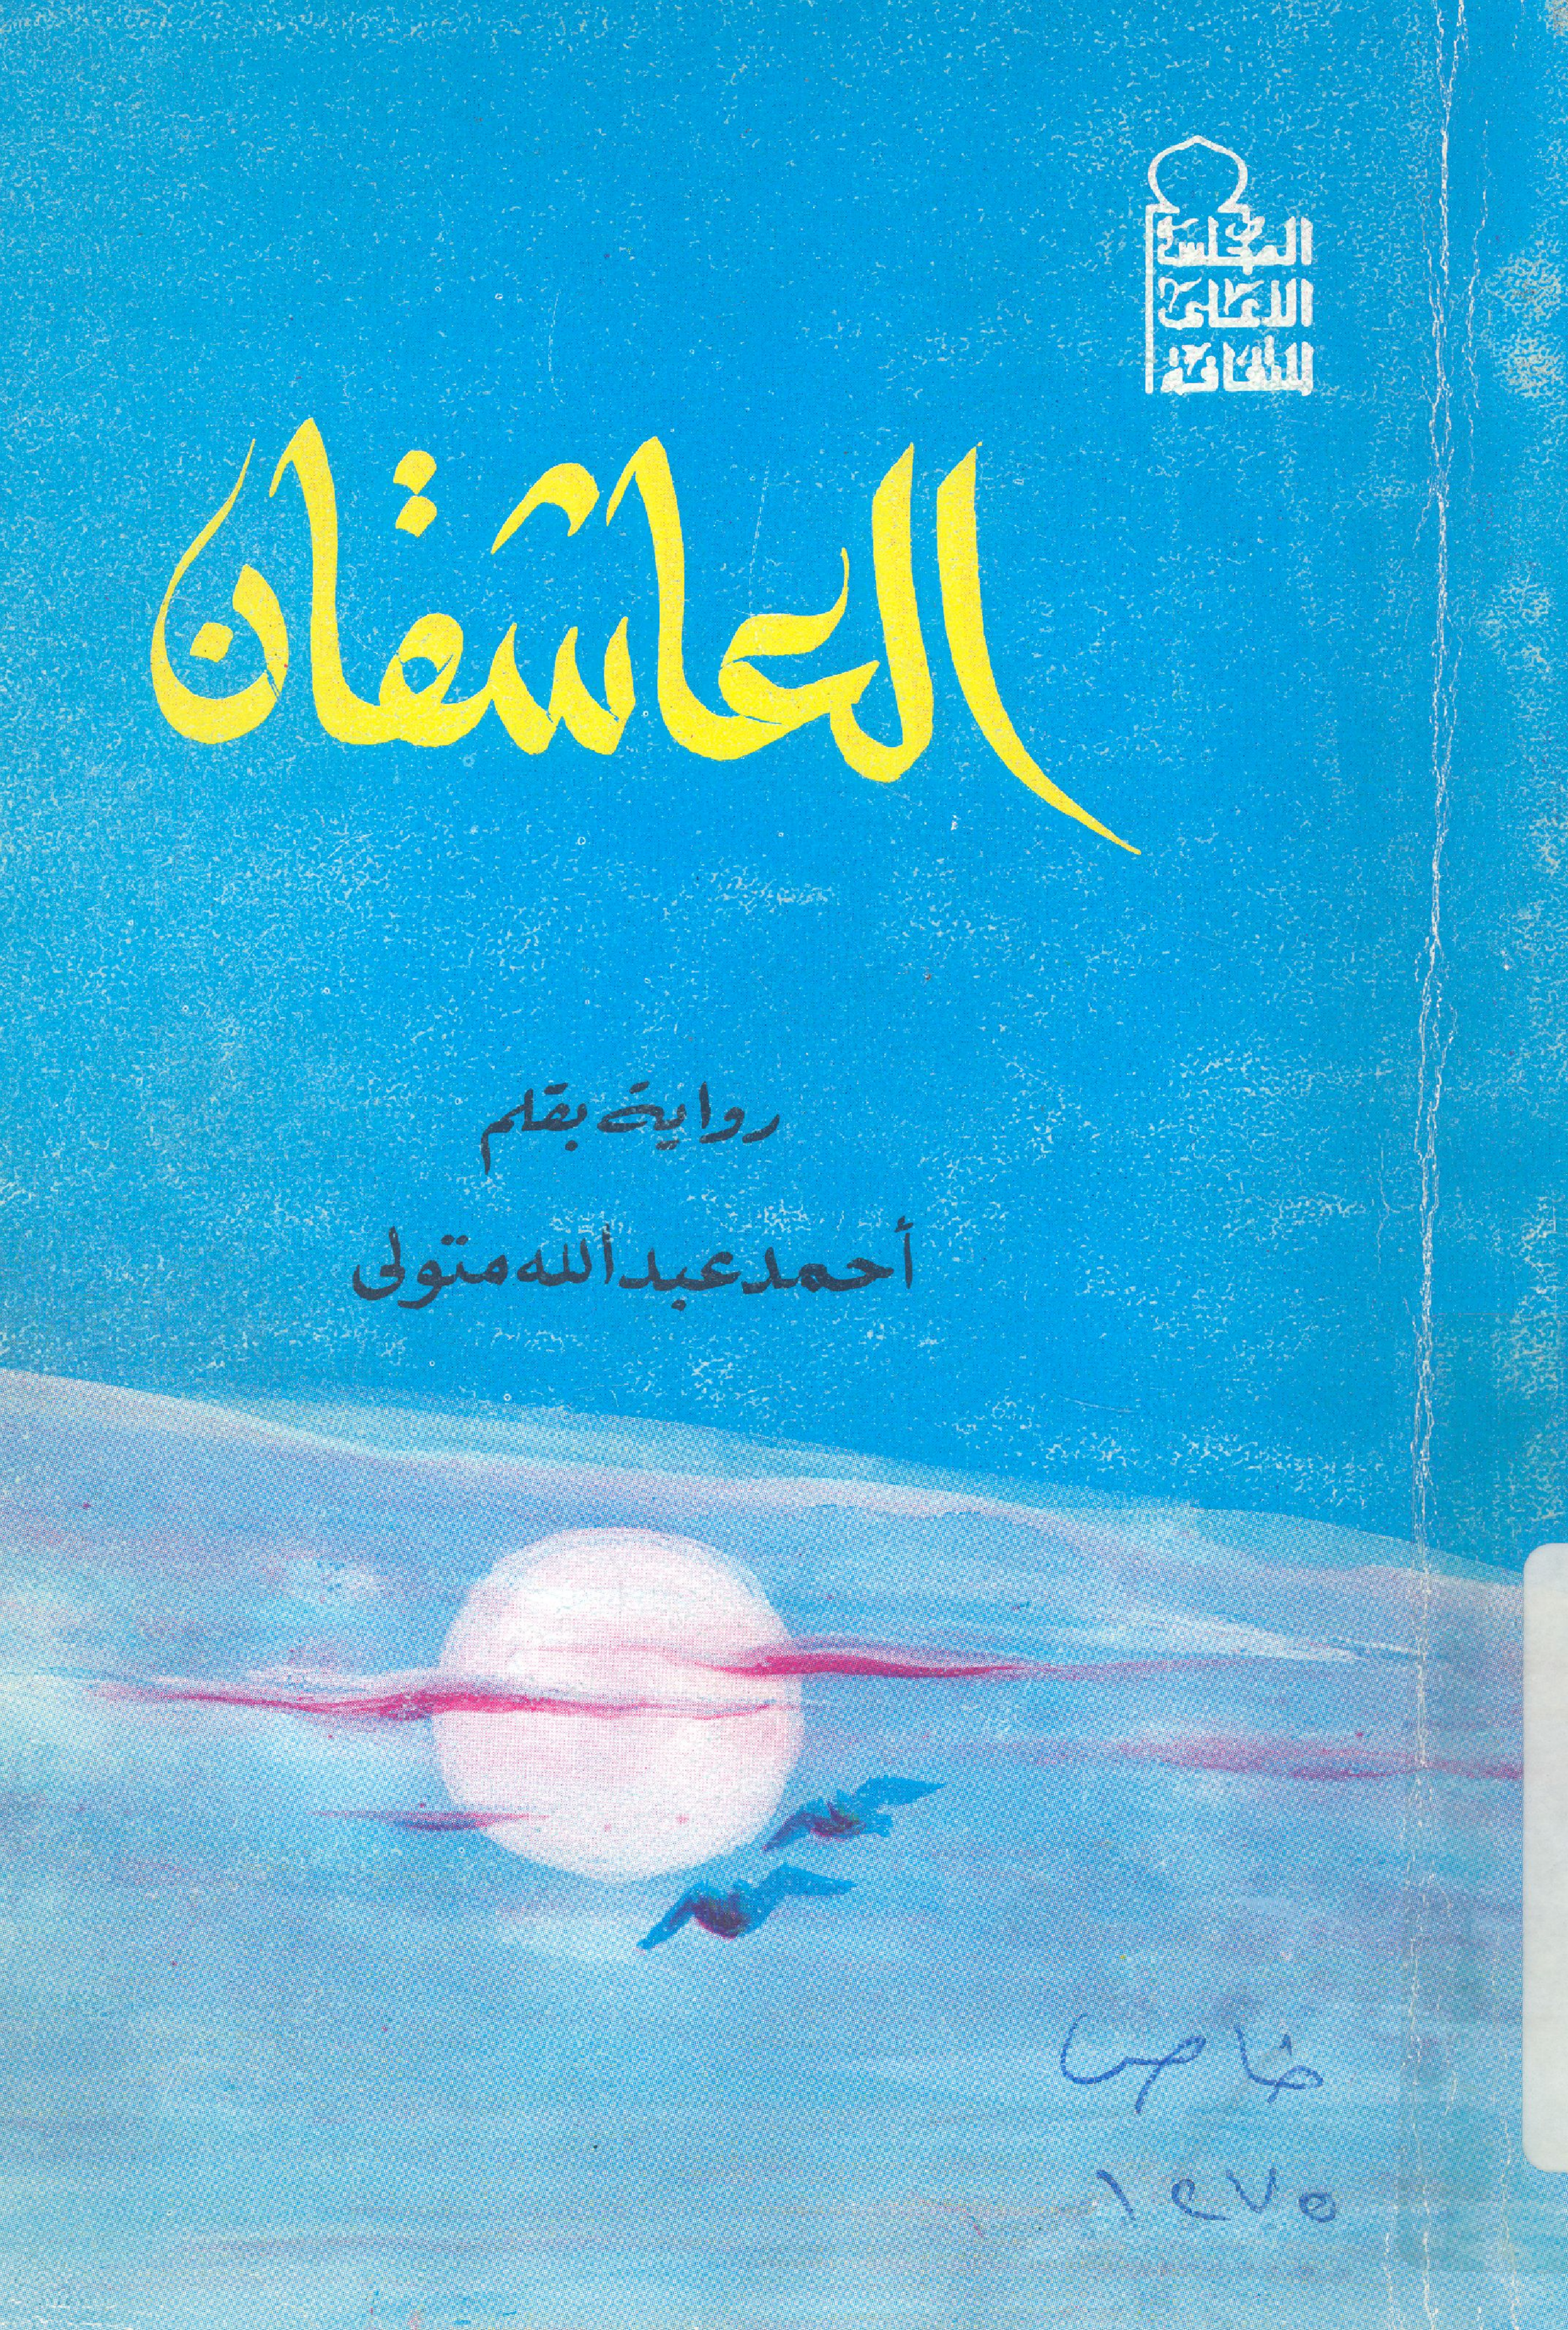 المجلس
الاعلى
للثقافة
العاشقان
رواية بقلم
أحمد عبد الله متولى
خاص
١٢٧٥